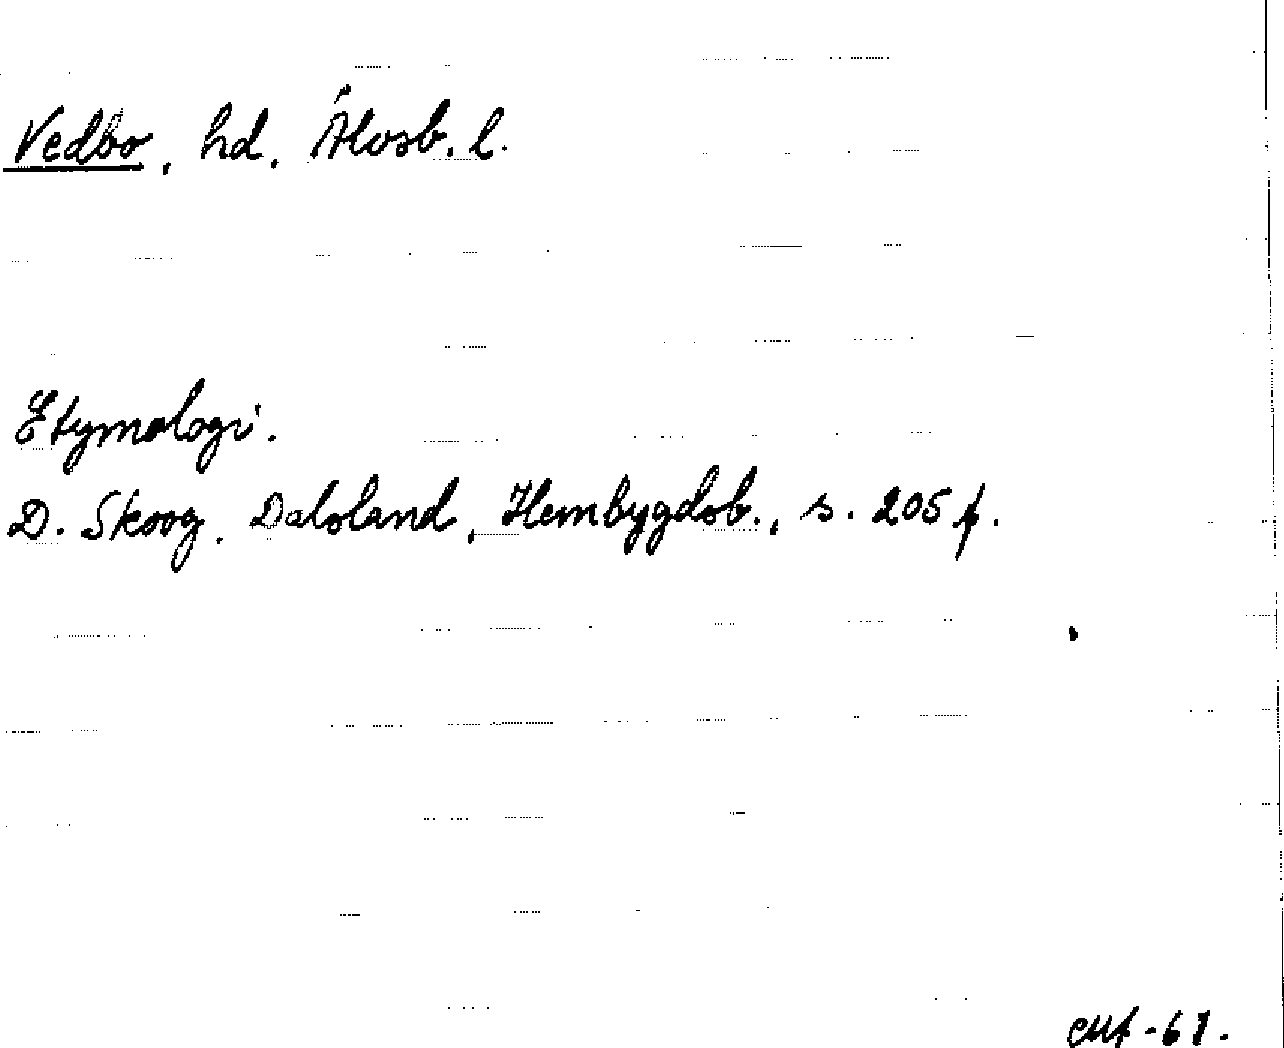 Vedbo, hd, Älvsb. l.
Etymologi.
D. Skoog, Dalsland, Hembygdsb., s. 205 f.
-61.